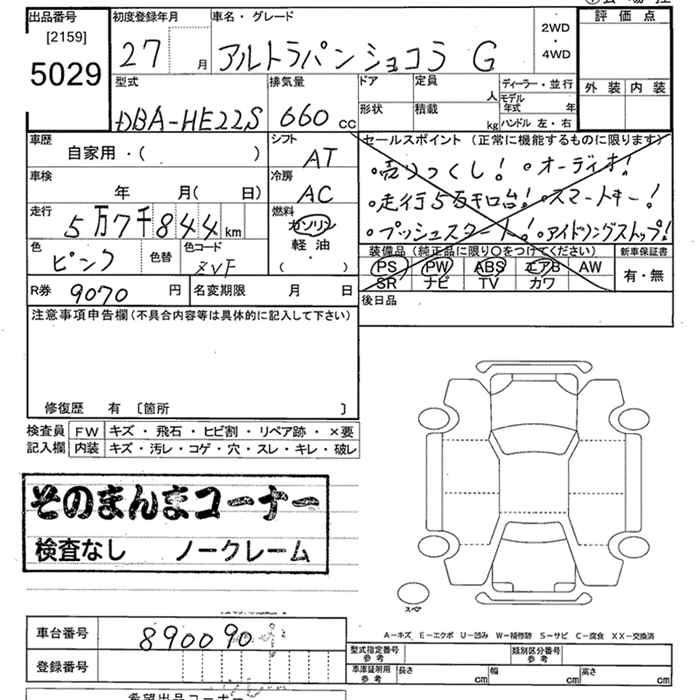 出品番号 初度登録年月 車名・グレード 2WD 評価点
[2159] 5029 27 月 アルトラパンショコラ G ・ 4WD
型式 排気量 ドア 定員 人 ディーラー・並行 外装 内装
DBA-HE22S 660 cc 形状 積載 kg モデル年式 年 ハンドル 左・右
車歴 シフト セールスポイント (正常に機能するものに限ります)
自家用・( ) AT 売りつくし! オーディオ!
車検 冷房 走行5万キロ台! スマートキー!
年 月( 日) AC プッシュスタート! アイドリングストップ!
走行 燃料
5万7千844km ガソリン 装備品 (純正品に限り○をつけてください) 新車保証書
色 色替 色コード 軽油 PS PW ABS エアB AW 有・無
ピンク ZVF ( ・ ) SR ナビ TV カワ
R券 9070 円 名変期限 月 日 後日品
注意事項申告欄(不具合内容等は具体的に記入して下さい)
修復歴 有 〔箇所 〕
検査員 FW キズ・飛石・ヒビ割・リペア跡・×要
記入欄 内装 キズ・汚レ・コゲ・穴・スレ・キレ・破レ
そのまんまコーナー
検査なし ノークレーム
スペア
A-キズ E-エクボ U-凹み W-補修跡 S-サビ C-腐食 XX-交換済
車台番号 890090 型式指定番号 参考 類別区分番号 参考
登録番号 車庫証明用 参考 長さ cm 幅 cm 高さ cm
希望出品コーナー